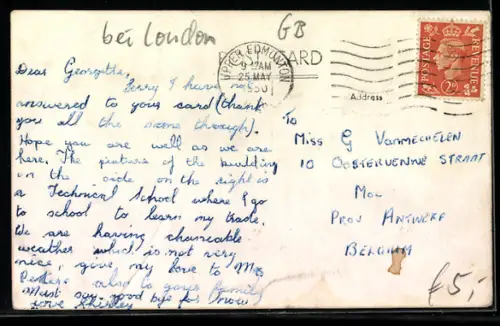 bei London
GB
POST CARD
UPPER EDMONTON
9 AM
25 MAY
1950
POSTAGE REVENUE
2D
Address
Dear Georgette,
Sorry I have not
answered to your card (thank
you all the same though).
Hope you are well as we are
here. The picture of the building
on the side on the right is
a Technical School where I go
to school to learn my trade.
We are having changeable
weather which is not very
nice, give my love to Mrs
also to your family
Must say good bye for now
love Shirley
To
Miss G Vanmechelen
10 Oostervenne Straat
Mol
Prov Antwerp
Belgium
£5,-